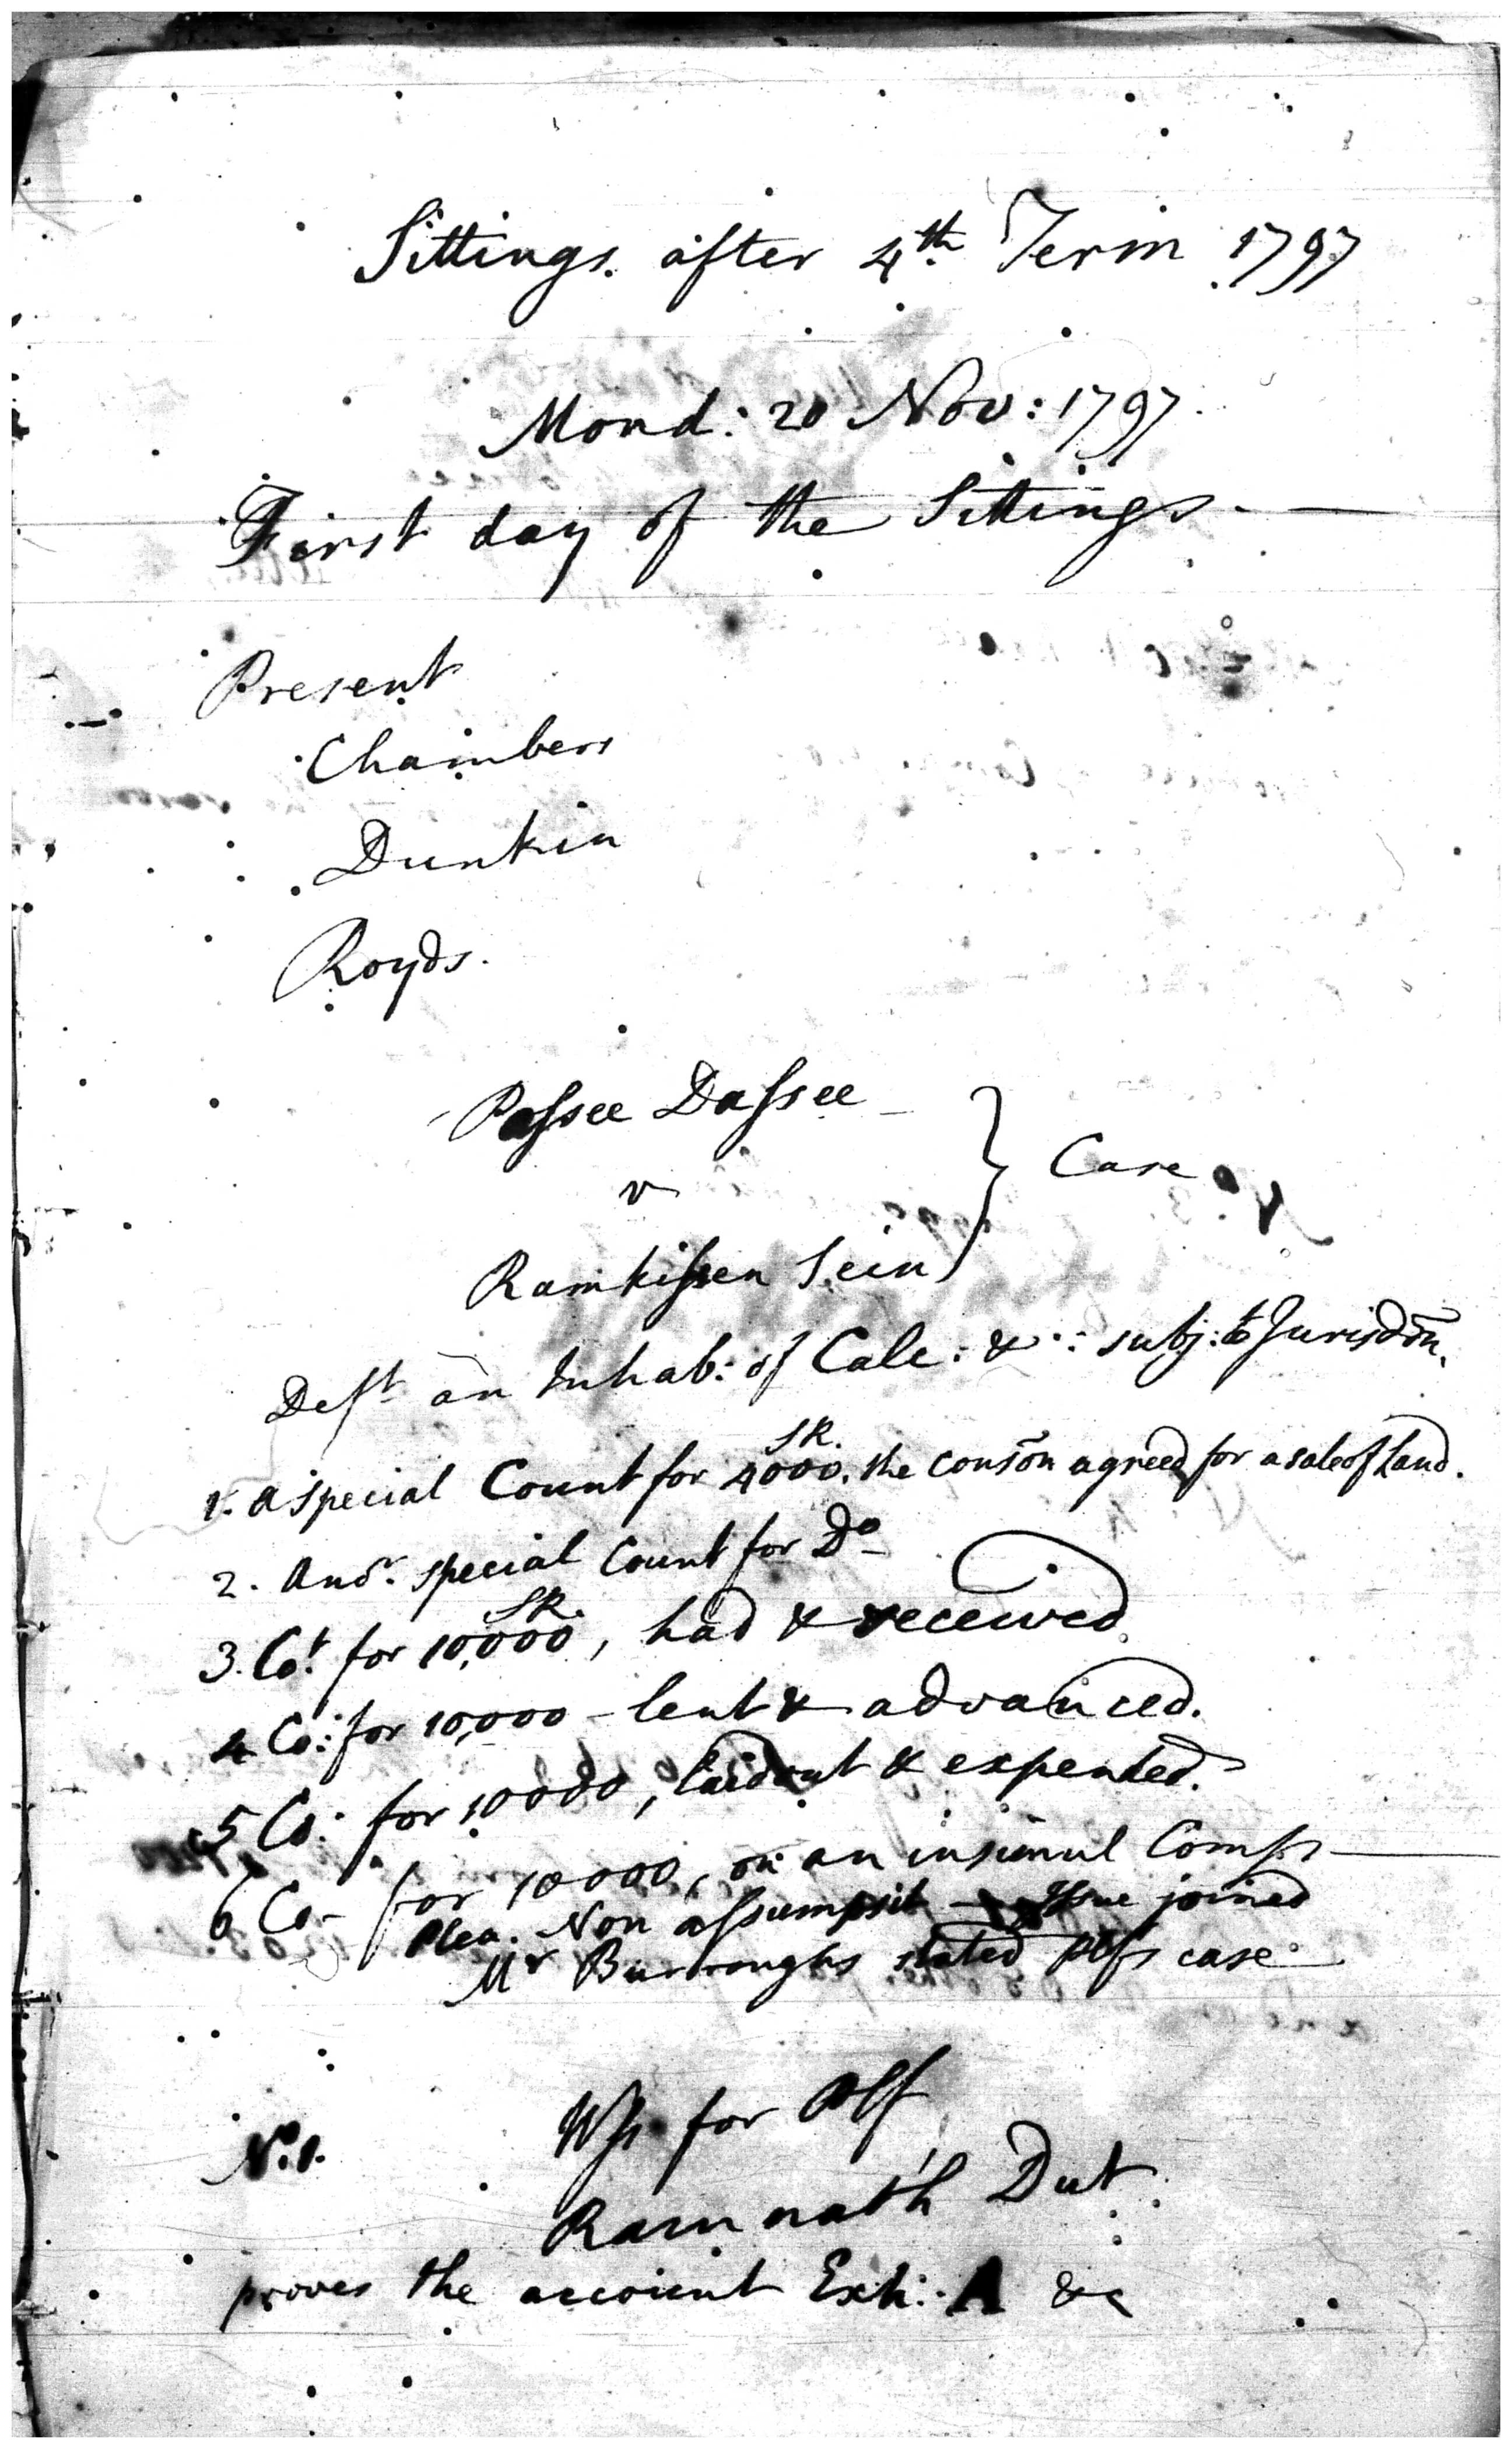 Sittings after 4th Term 1797
Mond: 20 Nov: 1797.
First day of the Sittings. —
Present
Chambers
Dunkin
Royds.
Passee Dassee
v
Ramkissen Sein } Case
Deft an Inhab: of Calc: & subj: to Jurisdon.
1. a Special Count for 4000. SR. the conson agreed for a sale of Land.
2. Anor. special Count for Do
3. Cot. for 10,000 SR., had & received
4 Co: for 10,000 - lent & advanced.
5 Co: for 10000, laid out & expended.
6 Co - for 10000, on an insimul Comps —
Plea. Non assumpsit — Issue joined
Mr Burroughs stated Plfs case
Ws for Plf
No. 1. Ramnath Dut
proves the account Exh: A &c